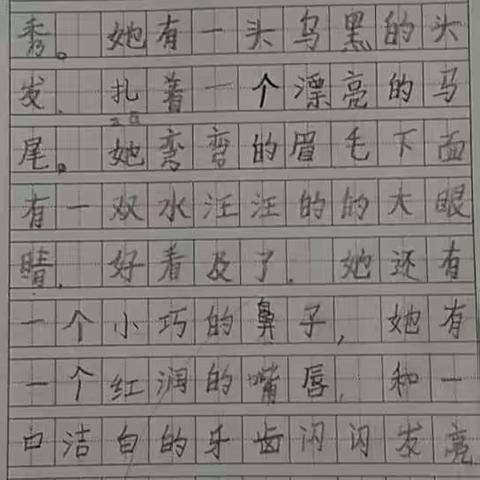 秀。她有一头乌黑的头
发，扎着一个漂亮的马
尾。她弯弯的眉毛下面
有一双水汪汪的的大眼
睛，好看及了。她还有
一个小巧的鼻子，她有
一个红润的嘴唇，和一
口洁白的牙齿闪闪发亮